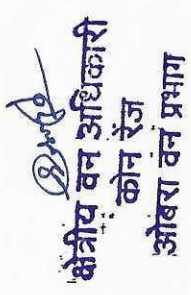 क्षेत्रीय वन अधिकारी
कोन रेंज
ओबरा वन प्रभाग